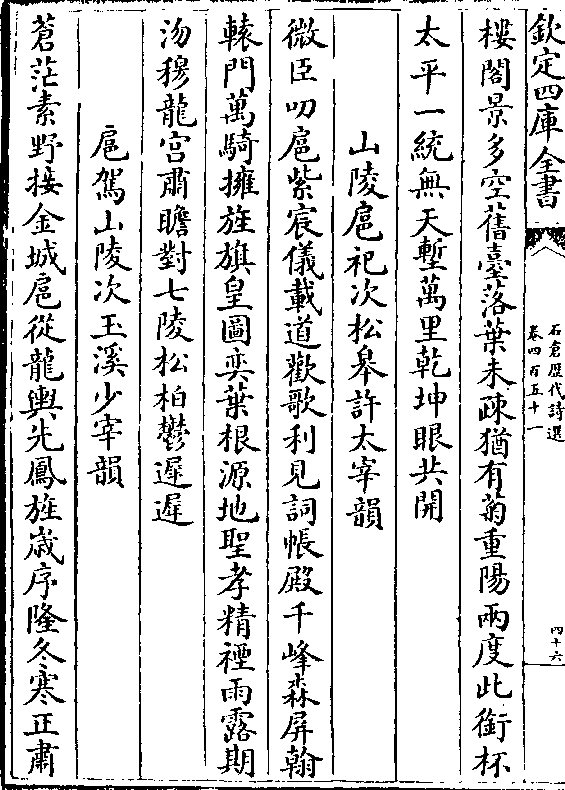 欽定四庫全書
石倉歷代詩選
卷四百五十一
四十六
樓閣景多空舊臺落葉未疎猶有菊重陽兩度此銜杯
太平一統無天塹萬里乾坤眼共開
山陵扈祀次松皋許太宰韻
微臣叨扈紫宸儀載道歡歌利見詞帳殿千峰森屏翰
轅門萬騎擁旌旗皇圖奕葉根源地聖孝精禋雨露期
沕穆龍宫肅瞻對七陵松柏鬱遲遲
扈駕山陵次玉溪少宰韻
蒼茫素野接金城扈從龍輿先鳳旌歳序隆冬寒正肅